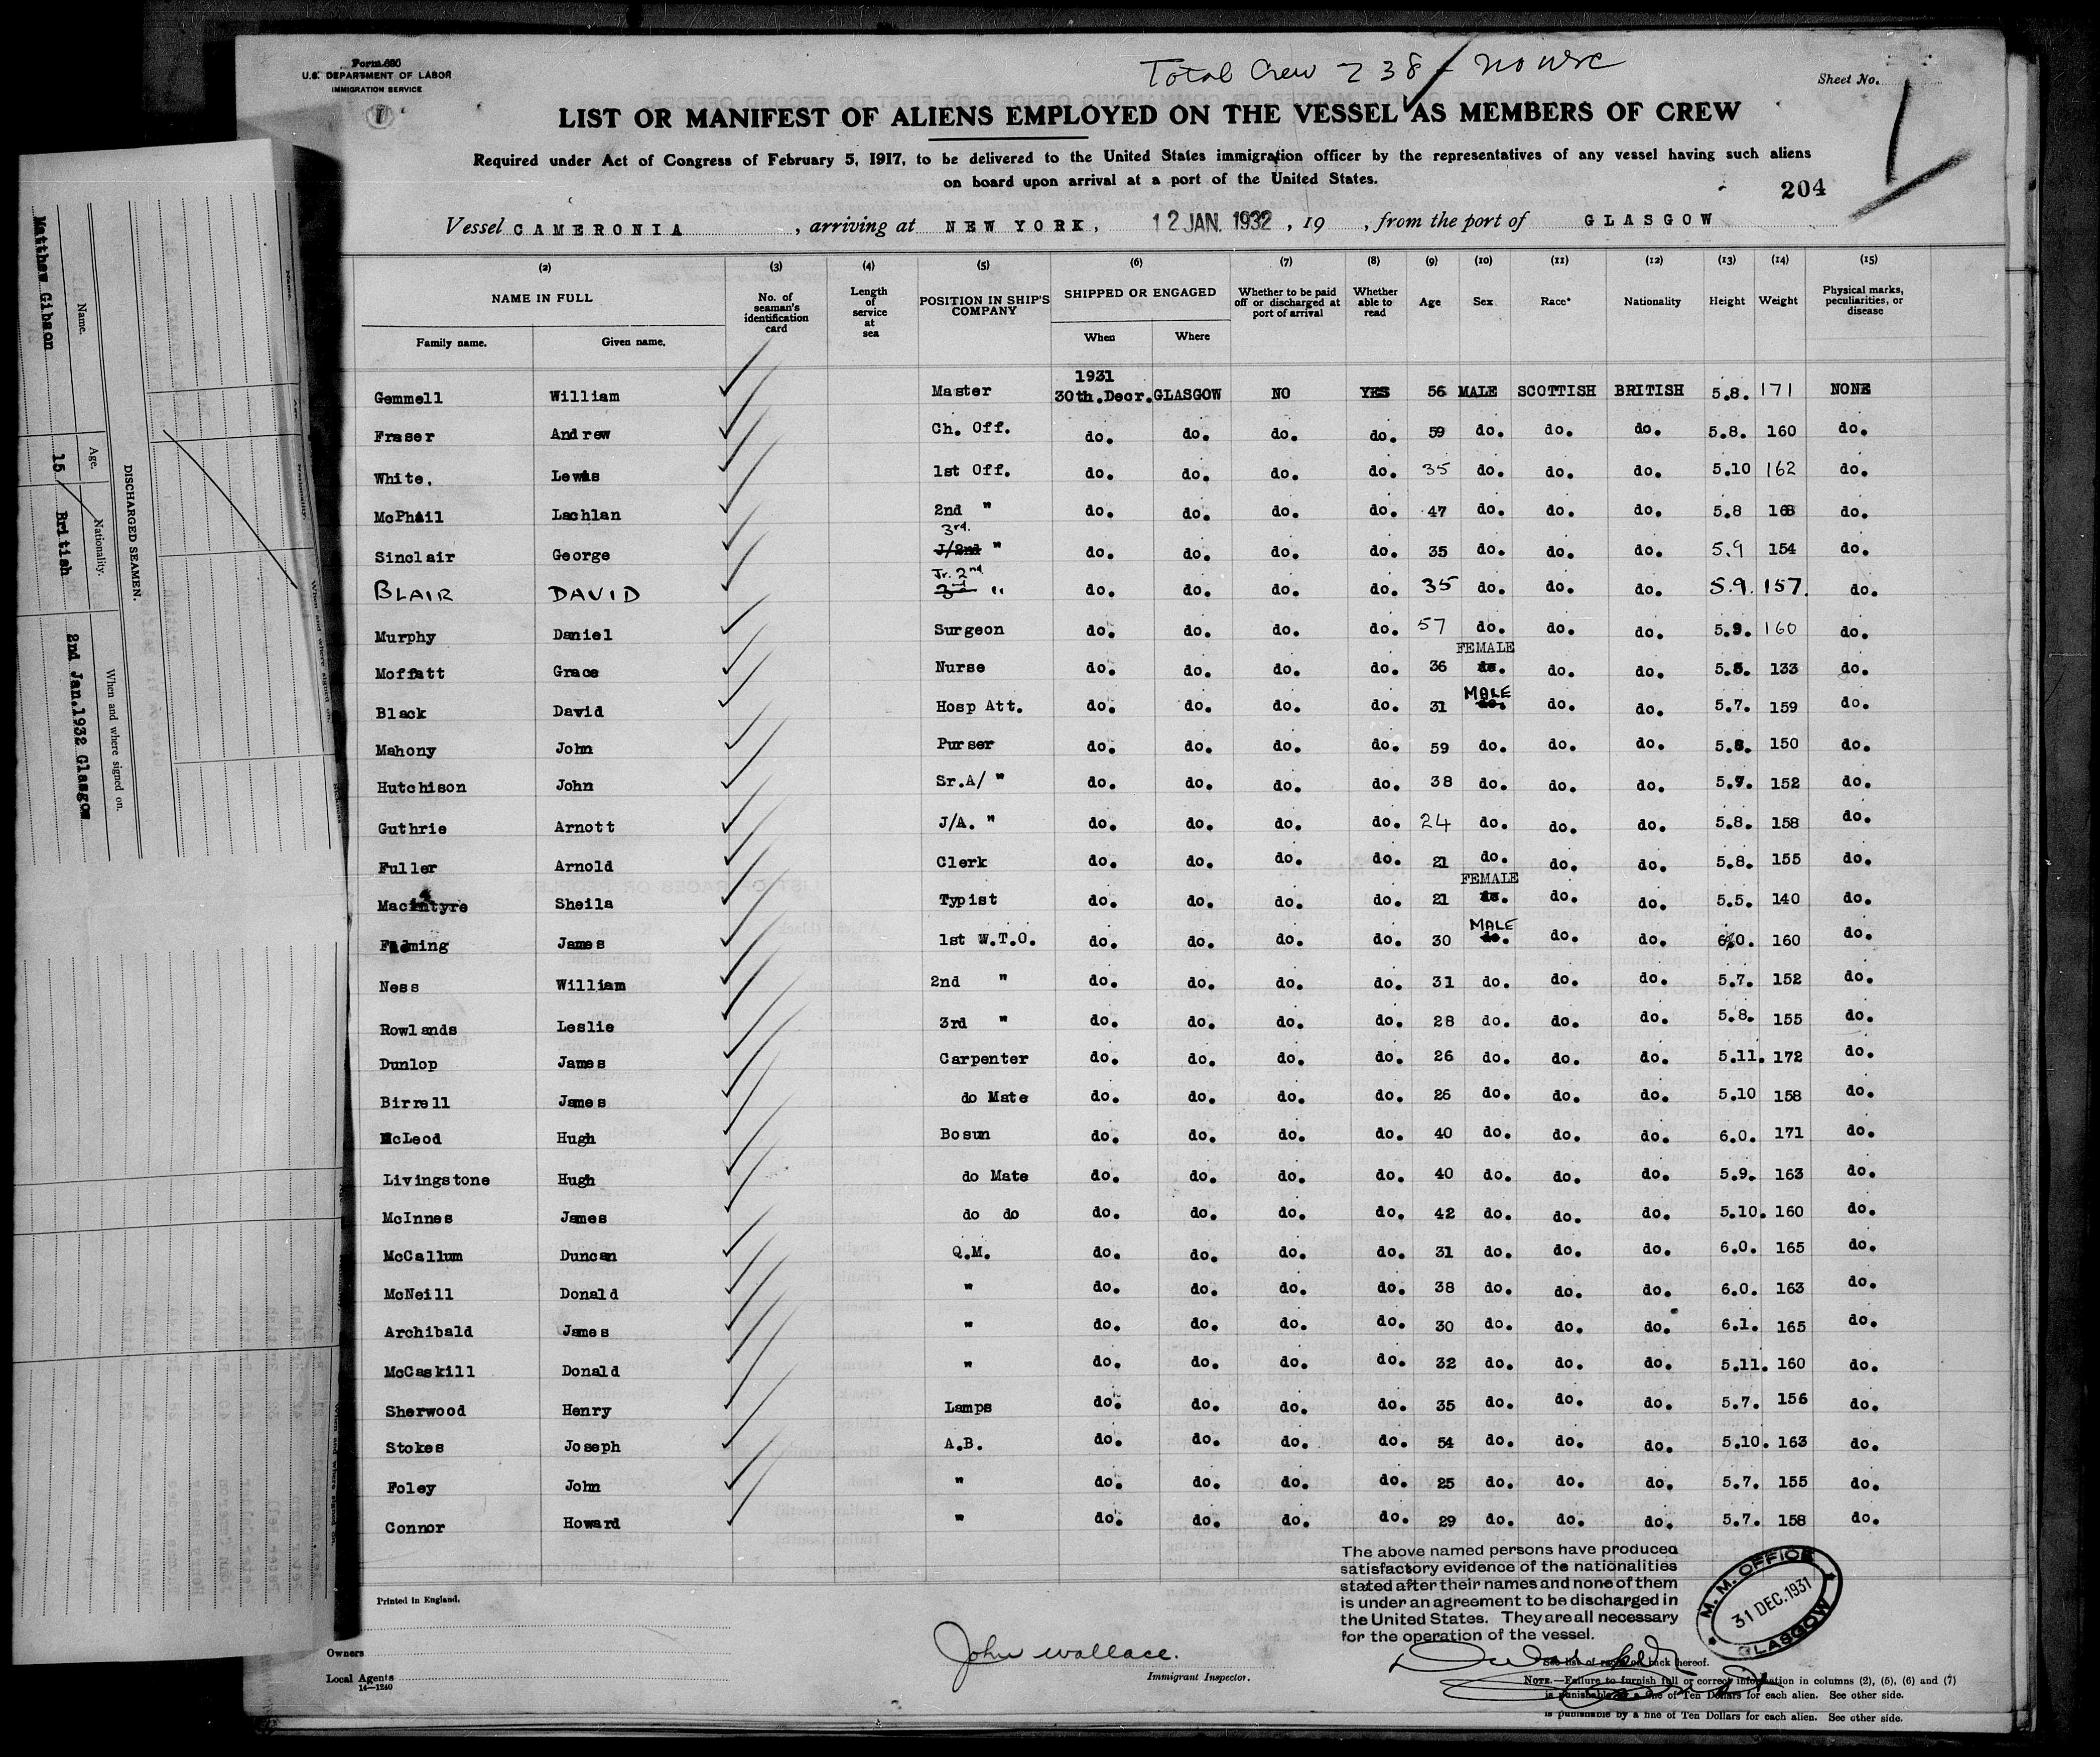 Form 680
U.S. DEPARTMENT OF LABOR
IMMIGRATION SERVICE
Total Crew 238
Sheet No. 1
LIST OR MANIFEST OF ALIENS EMPLOYED ON THE VESSEL AS MEMBERS OF CREW
Required under Act of Congress of February 5, 1917, to be delivered to the United States immigration officer by the representatives of any vessel having such aliens
on board upon arrival at a port of the United States.
204
Vessel CAMERONIA, arriving at NEW YORK, 12 JAN. 1932, 19 , from the port of GLASGOW
(2) (3) (4) (5) (6) (7) (8) (9) (10) (11) (12) (13) (14) (15)
NAME IN FULL No. of seaman's identification card Length of service at sea POSITION IN SHIP'S COMPANY SHIPPED OR ENGAGED Whether to be paid off or discharged at port of arrival Whether able to read Age Sex Race* Nationality Height Weight Physical marks, peculiarities, or disease
Family name. Given name. When Where
1931
Gemmell William Master 30th.Decr. GLASGOW NO YES 56 MALE SCOTTISH BRITISH 5.8. 171 NONE
Fraser Andrew Ch. Off. do. do. do. do. 59 do. do. do. 5.8. 160 do.
White, Lewis 1st Off. do. do. do. do. 35 do. do. do. 5.10 162 do.
McPhail Lachlan 2nd " do. do. do. do. 47 do. do. do. 5.8 168 do.
3rd.
Sinclair George J/2nd " do. do. do. do. 35 do. do. do. 5.9 154 do.
Jr. 2nd
BLAIR DAVID 3rd " do. do. do. do. 35 do. do. do. 5.9. 157. do.
Murphy Daniel Surgeon do. do. do. do. 57 do. do. do. 5.9. 160 do.
FEMALE
Moffatt Grace Nurse do. do. do. do. 36 do. do. do. 133 do.
MALE
Black David Hosp Att. do. do. do. do. 31 do. do. do. 5.7. 159 do.
Mahony John Purser do. do. do. do. 59 do. do. do. 5.8. 150 do.
Hutchison John Sr.A/ " do. do. do. do. 38 do. do. do. 5.7. 152 do.
Guthrie Arnott J/A. " do. do. do. do. 24 do. do. do. 5.8. 158 do.
Fuller Arnold Clerk do. do. do. do. 21 do. do. do. 5.8. 155 do.
FEMALE
Macintyre Sheila Typist do. do. do. do. 21 do. do. do. 5.5. 140 do.
MALE
James 1st W.T.O. do. do. do. do. 30 do. do. do. 160 do.
Ness William 2nd " do. do. do. do. 31 do. do. do. 5.7. 152 do.
Rowlands Leslie 3rd " do. do. do. do. 28 do. do. do. 5.8. 155 do.
Dunlop James Carpenter do. do. do. do. 26 do. do. do. 5.11. 172 do.
Birrell James do Mate do. do. do. do. 26 do. do. do. 5.10 158 do.
McLeod Hugh Bosun do. do. do. do. 40 do. do. do. 6.0. 171 do.
Livingstone Hugh do Mate do. do. do. do. 40 do. do. do. 5.9. 163 do.
McInnes James do do do. do. do. do. 42 do. do. do. 5.10. 160 do.
McCallum Duncan Q.M. do. do. do. do. 31 do. do. do. 6.0. 165 do.
McNeill Donald " do. do. do. do. 38 do. do. do. 6.0. 163 do.
Archibald James " do. do. do. do. 30 do. do. do. 6.1. 165 do.
McCaskill Donald " do. do. do. do. 32 do. do. do. 5.11. 160 do.
Sherwood Henry Lamps do. do. do. do. 35 do. do. do. 5.7. 156 do.
Stokes Joseph A.B. do. do. do. do. 54 do. do. do. 5.10. 163 do.
Foley John " do. do. do. do. 25 do. do. do. 5.7. 155 do.
Connor Howard " do. do. do. do. 29 do. do. do. 5.7. 158 do.
The above named persons have produced
satisfactory evidence of the nationalities
stated after their names and none of them
is under an agreement to be discharged in
the United States. They are all necessary
for the operation of the vessel.
M. M. OFFICE
31 DEC. 1931
GLASGOW
Printed in England.
Owners
Local Agents
14—1240
John Wallace.
Immigrant Inspector.
See list of races on back hereof.
NOTE.—Failure to furnish full or correct information in columns (2), (5), (6) and (7)
is punishable by a fine of Ten Dollars for each alien. See other side.
is punishable by a fine of Ten Dollars for each alien. See other side.
DISCHARGED SEAMEN.
Name. Age. Nationality. When and where signed on.
Matthew Gibson 15 British 2nd Jan.1932 Glasgow